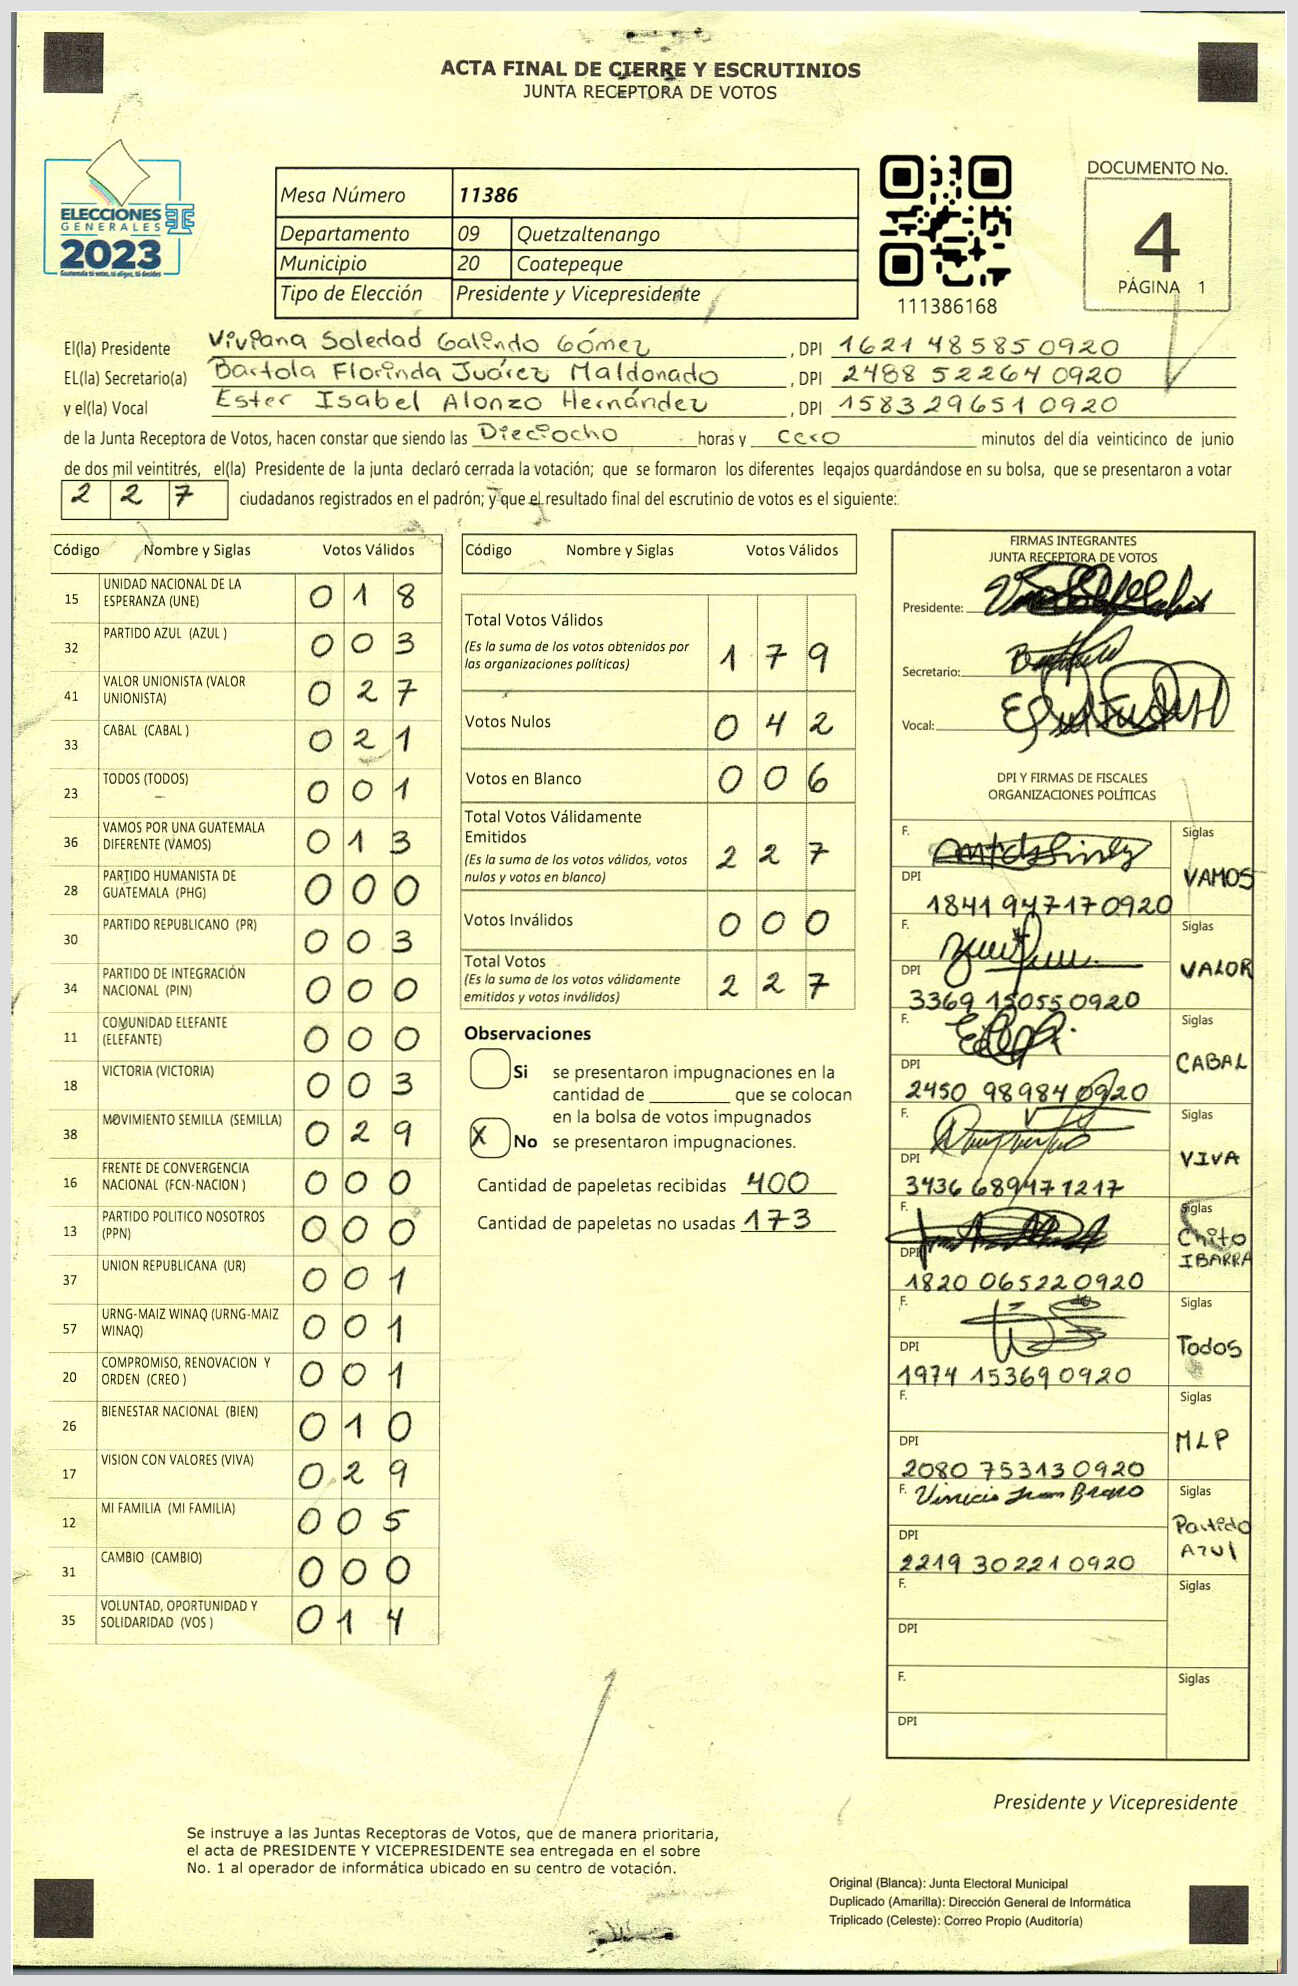 ACTA FINAL DE CIERRE Y ESCRUTINIOS
JUNTA RECEPTORA DE VOTOS
ELECCIONES
GENERALES
2023
Guatemala tú votas, tú eliges, tú decides
Mesa Número 11386
Departamento 09 Quetzaltenango
Municipio 20 Coatepeque
Tipo de Elección Presidente y Vicepresidente
111386168
DOCUMENTO No.
4
PÁGINA 1
El(la) Presidente Viviana Soledad Galindo Gómez, DPI 1621 48585 0920
EL(la) Secretario(a) Bartola Florinda Juárez Maldonado, DPI 2488 52264 0920
y el(la) Vocal Ester Isabel Alonzo Hernández, DPI 1583 29651 0920
de la Junta Receptora de Votos, hacen constar que siendo las Dieciocho horas y cero minutos del día veinticinco de junio
de dos mil veintitrés, el(la) Presidente de la junta declaró cerrada la votación; que se formaron los diferentes legajos quardándose en su bolsa, que se presentaron a votar
2 2 7 ciudadanos registrados en el padrón; y que el resultado final del escrutinio de votos es el siguiente:
Código Nombre y Siglas Votos Válidos
15 UNIDAD NACIONAL DE LA ESPERANZA (UNE) 0 1 8
32 PARTIDO AZUL (AZUL ) 0 0 3
41 VALOR UNIONISTA (VALOR UNIONISTA) 0 2 7
33 CABAL (CABAL ) 0 2 1
23 TODOS (TODOS) 0 0 1
36 VAMOS POR UNA GUATEMALA DIFERENTE (VAMOS) 0 1 3
28 PARTIDO HUMANISTA DE GUATEMALA (PHG) 0 0 0
30 PARTIDO REPUBLICANO (PR) 0 0 3
34 PARTIDO DE INTEGRACIÓN NACIONAL (PIN) 0 0 0
11 COMUNIDAD ELEFANTE (ELEFANTE) 0 0 0
18 VICTORIA (VICTORIA) 0 0 3
38 MOVIMIENTO SEMILLA (SEMILLA) 0 2 9
16 FRENTE DE CONVERGENCIA NACIONAL (FCN-NACION ) 0 0 0
13 PARTIDO POLITICO NOSOTROS (PPN) 0 0 0
37 UNION REPUBLICANA (UR) 0 0 1
57 URNG-MAIZ WINAQ (URNG-MAIZ WINAQ) 0 0 1
20 COMPROMISO, RENOVACION Y ORDEN (CREO ) 0 0 1
26 BIENESTAR NACIONAL (BIEN) 0 1 0
17 VISION CON VALORES (VIVA) 0 2 9
12 MI FAMILIA (MI FAMILIA) 0 0 5
31 CAMBIO (CAMBIO) 0 0 0
35 VOLUNTAD, OPORTUNIDAD Y SOLIDARIDAD (VOS ) 0 1 4
Código Nombre y Siglas Votos Válidos
Total Votos Válidos
(Es la suma de los votos obtenidos por
las organizaciones políticas) 1 7 9
Votos Nulos 0 4 2
Votos en Blanco 0 0 6
Total Votos Válidamente
Emitidos
(Es la suma de los votos válidos, votos
nulos y votos en blanco) 2 2 7
Votos Inválidos 0 0 0
Total Votos
(Es la suma de los votos válidamente
emitidos y votos inválidos) 2 2 7
Observaciones
Si se presentaron impugnaciones en la
cantidad de ________ que se colocan
en la bolsa de votos impugnados
X No se presentaron impugnaciones.
Cantidad de papeletas recibidas 400
Cantidad de papeletas no usadas 173
FIRMAS INTEGRANTES
JUNTA RECEPTORA DE VOTOS
Presidente:
Secretario:
Vocal:
DPI Y FIRMAS DE FISCALES
ORGANIZACIONES POLÍTICAS
F. Siglas
DPI VAMOS
1841 94717 0920
F. Siglas
DPI VALOR
3369 15055 0920
F. Siglas
DPI CABAL
2450 98984 0920
F. Siglas
DPI VIVA
3436 68947 1217
F. Siglas
DPI Chito IBARRA
1820 06522 0920
F. Siglas
DPI Todos
1974 15369 0920
F. Siglas
DPI MLP
2080 75313 0920
F. Siglas
DPI Partido Azul
2219 30221 0920
F. Siglas
DPI
F. Siglas
DPI
Presidente y Vicepresidente
Se instruye a las Juntas Receptoras de Votos, que de manera prioritaria,
el acta de PRESIDENTE Y VICEPRESIDENTE sea entregada en el sobre
No. 1 al operador de informática ubicado en su centro de votación.
Original (Blanca): Junta Electoral Municipal
Duplicado (Amarilla): Dirección General de Informática
Triplicado (Celeste): Correo Propio (Auditoría)